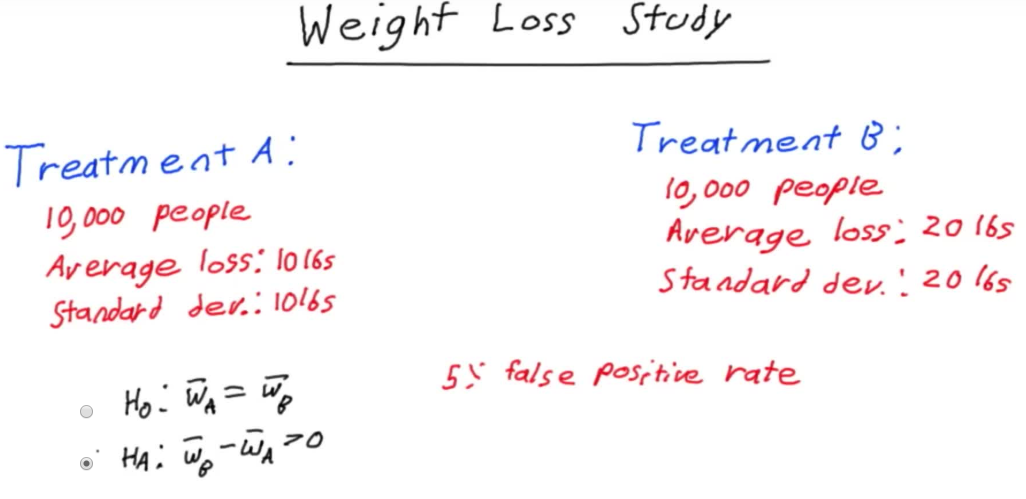 Weight Loss Study
Treatment A:
10,000 people
Average loss: 10 lbs
Standard dev.: 10 lbs
Treatment B:
10,000 people
Average loss: 20 lbs
Standard dev.: 20 lbs
5% false positive rate
H₀: w̄_A = w̄_B
H_A: w̄_B - w̄_A > 0